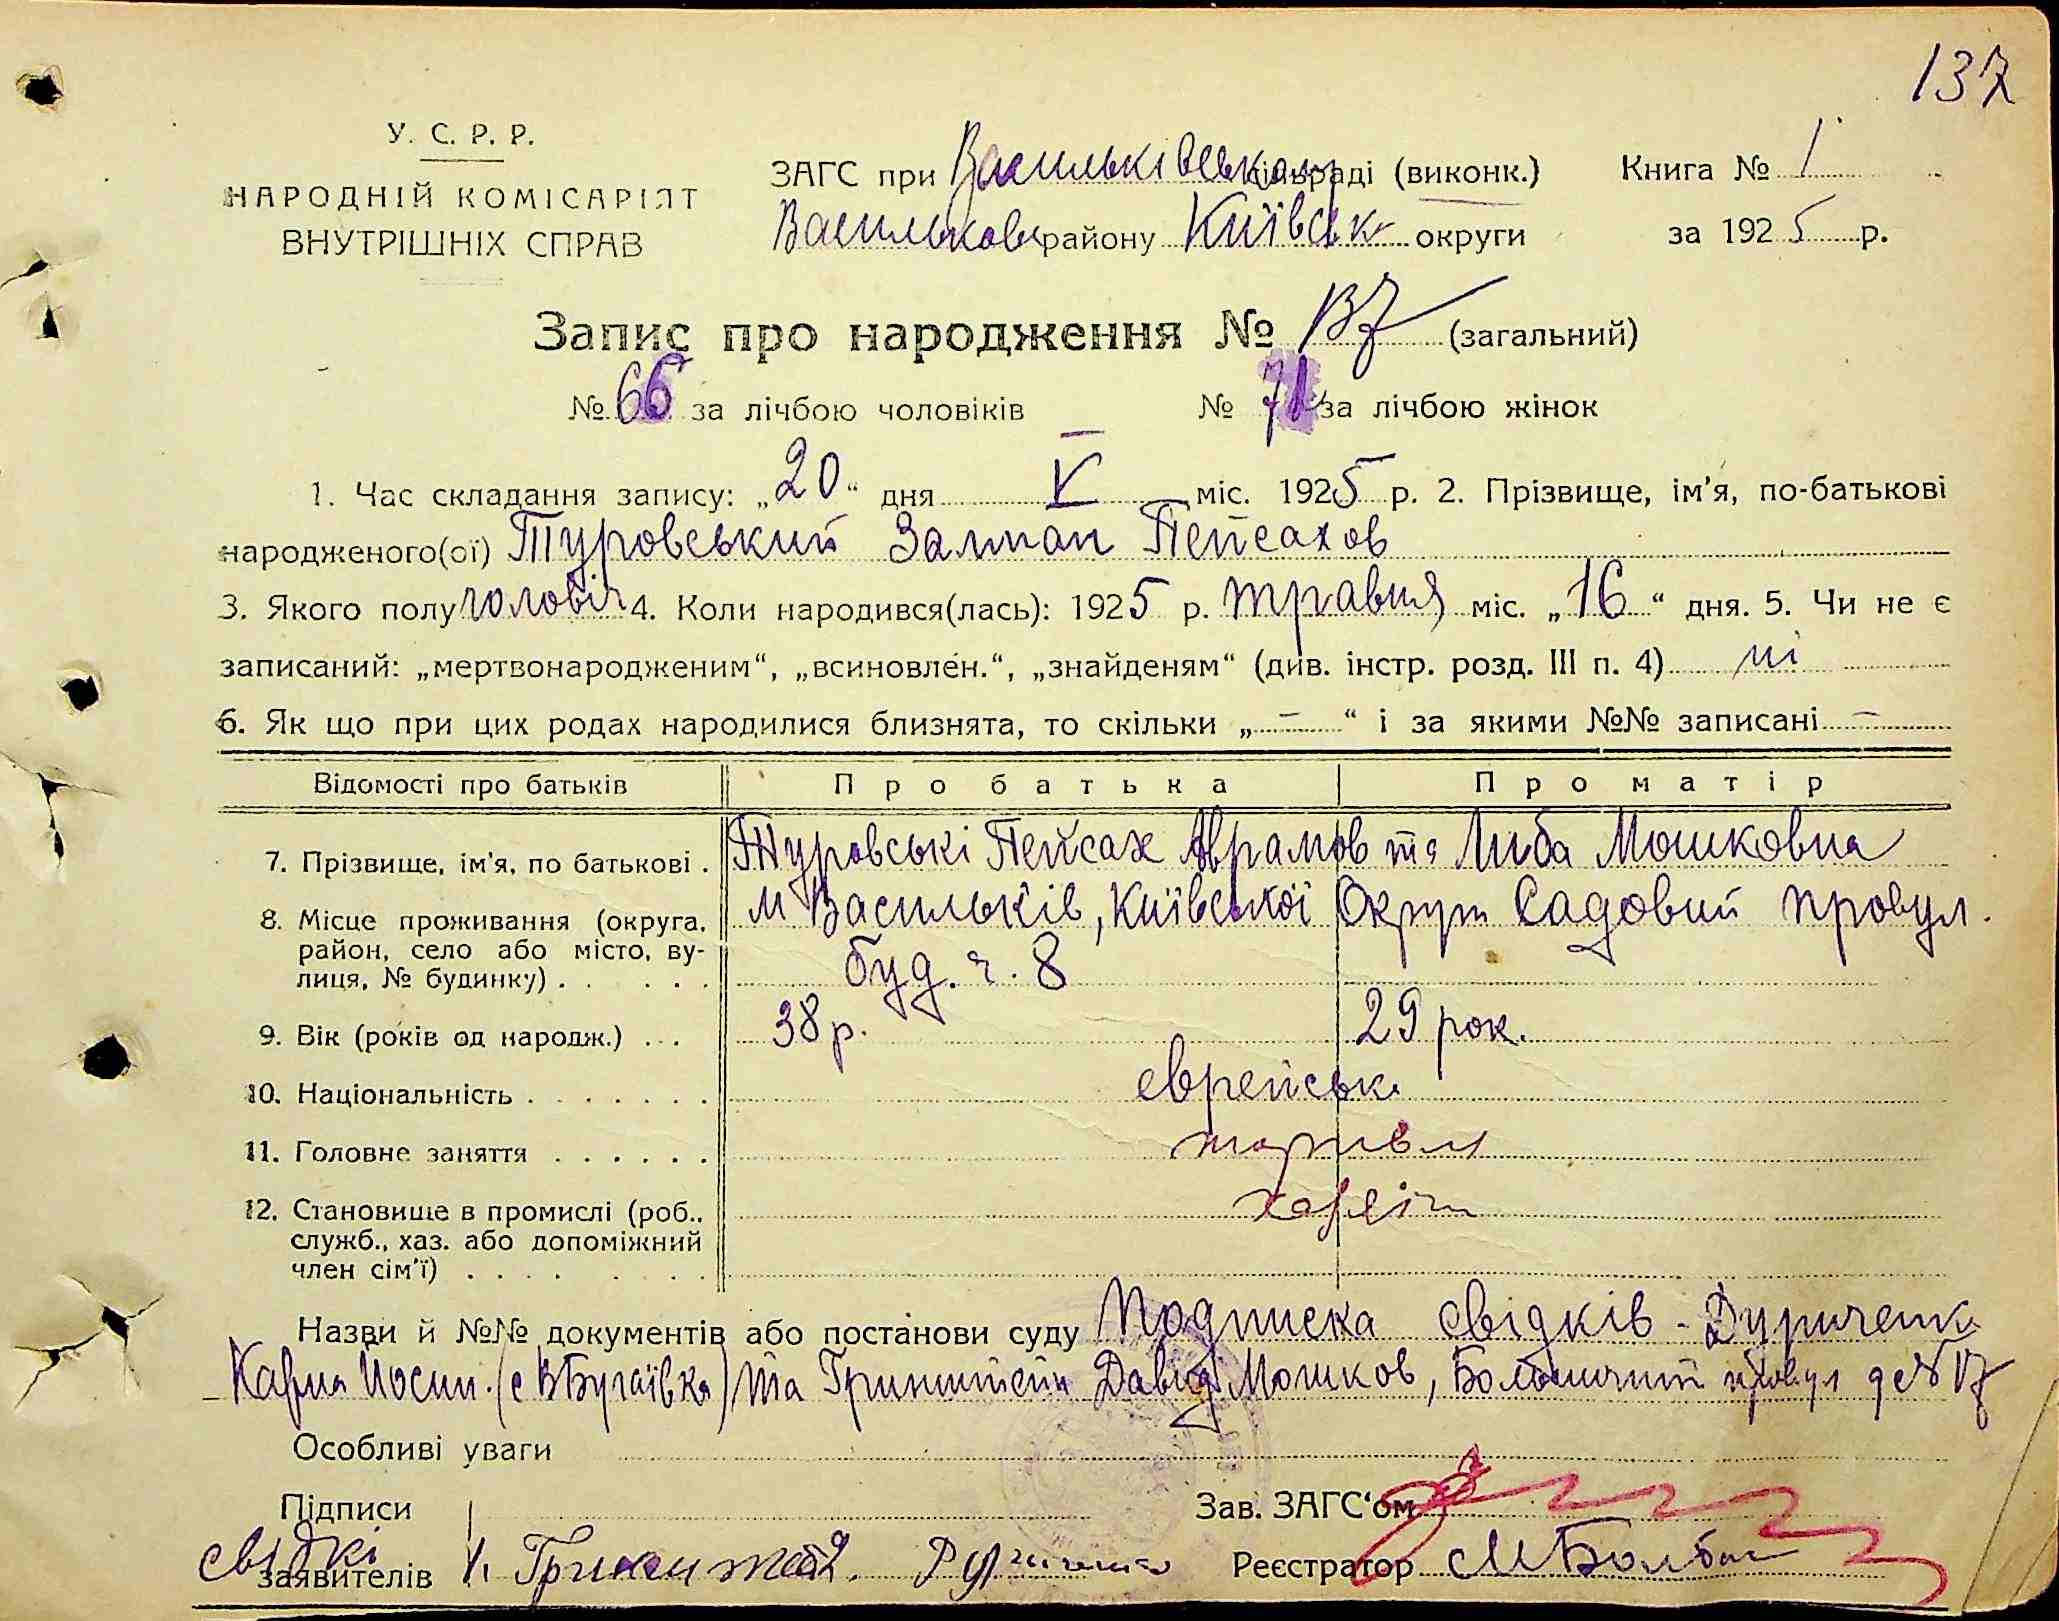 137
У. С. Р. Р.
НАРОДНІЙ КОМІСАРІЯТ
ВНУТРІШНІХ СПРАВ
ЗАГС при Васильківськом сільраді (виконк.) Книга № 1
Васильковс району Київськ округи за 1925 р.
Запис про народження № 137 (загальний)
№ 66 за лічбою чоловіків № 71 за лічбою жінок
1. Час складання запису: „20“ дня V міс. 1925 р. 2. Прізвище, ім'я, по-батькові
народженого(ої) Туровський Залман Пейсахов
3. Якого полу чоловіч 4. Коли народився(лась): 1925 р. травня міс. „16“ дня. 5. Чи не є
записаний: „мертвонародженим“, „всиновлен.“, „знайденям“ (див. інстр. розд. III п. 4) ні
6. Як що при цих родах народилися близнята, то скільки „ – “ і за якими №№ записані –
Відомості про батьків Про батька Про матір
7. Прізвище, ім'я, по батькові . Туровські Пейсах Аврамов та Либа Мошковна
8. Місце проживання (округа, район, село або місто, вулиця, № будинку) . м Васильків, Київської Округи Садовий провул.
буд. ч. 8
9. Вік (років од народж.) . . . 38 р. 29 рок.
10. Національність . еврейськ
11. Головне заняття . торгівля
12. Становище в промислі (роб.,
служб., хаз. або допоміжний
член сім'ї) .
Назви й №№ документів або постанови суду Подписка свідків -
(с ВБугаївка) та Гринштейн Давид Мошков, Больничний провул 17
Особливі уваги
Підписи Зав. ЗАГС'ом
свідкі
заявителів Реєстратор